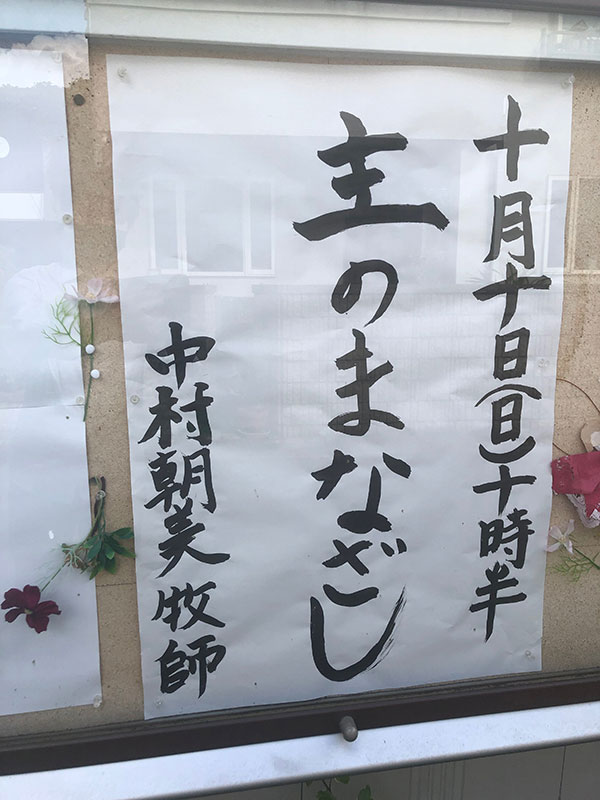 十月十日(日)十時半
主のまなざし
中村朝美牧師